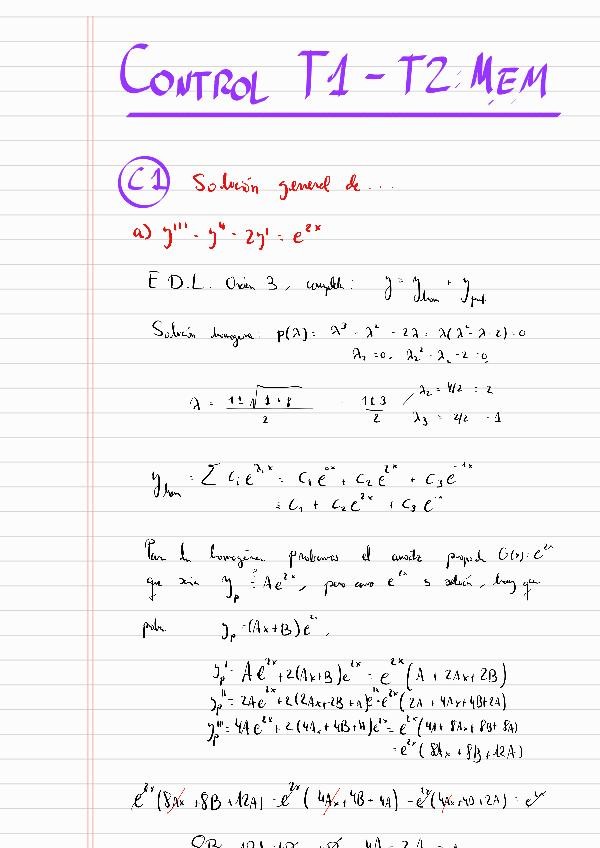 CONTROL T1 - T2: MEM
C1 Solución general de ...
a) y''' - y'' - 2y' = e^{2x}
E.D.L. Orden 3, completa: y = y_{hom} + y_{part}
Solución homogénea: p(λ) = λ³ - λ² - 2λ = λ(λ² - λ - 2) = 0
λ₁ = 0, λ₂² - λ₂ - 2 = 0
λ = (1 ± √(1+8))/2 = (1 ± 3)/2 λ₂ = 4/2 = 2
λ₃ = -2/2 = -1
y_{hom} = Σ C_i e^{λ_i x} = C₁e^{0x} + C₂e^{2x} + C₃e^{-1x}
= C₁ + C₂e^{2x} + C₃e^{-x}
homogénea probamos el ansatz G(x) = e^{2x}
que sería y_p = Ae^{2x}, pero como e^{2x} es solución, hay que
probar y_p = (Ax+B)e^{2x},
y_p' = Ae^{2x} + 2(Ax+B)e^{2x} = e^{2x}(A + 2Ax + 2B)
y_p'' = 2Ae^{2x} + 2(2Ax + 2B + A)e^{2x} = e^{2x}(2A + 4Ax + 4B + 2A)
y_p''' = 4Ae^{2x} + 2(4Ax + 4B + 4A)e^{2x} = e^{2x}(4A + 8Ax + 8B + 8A)
= e^{2x}(8Ax + 8B + 12A)
e^{2x}(8Ax + 8B + 12A) - e^{2x}(4Ax + 4B + 4A) - e^{2x}(4Ax + 4B + 2A) = e^{2x}